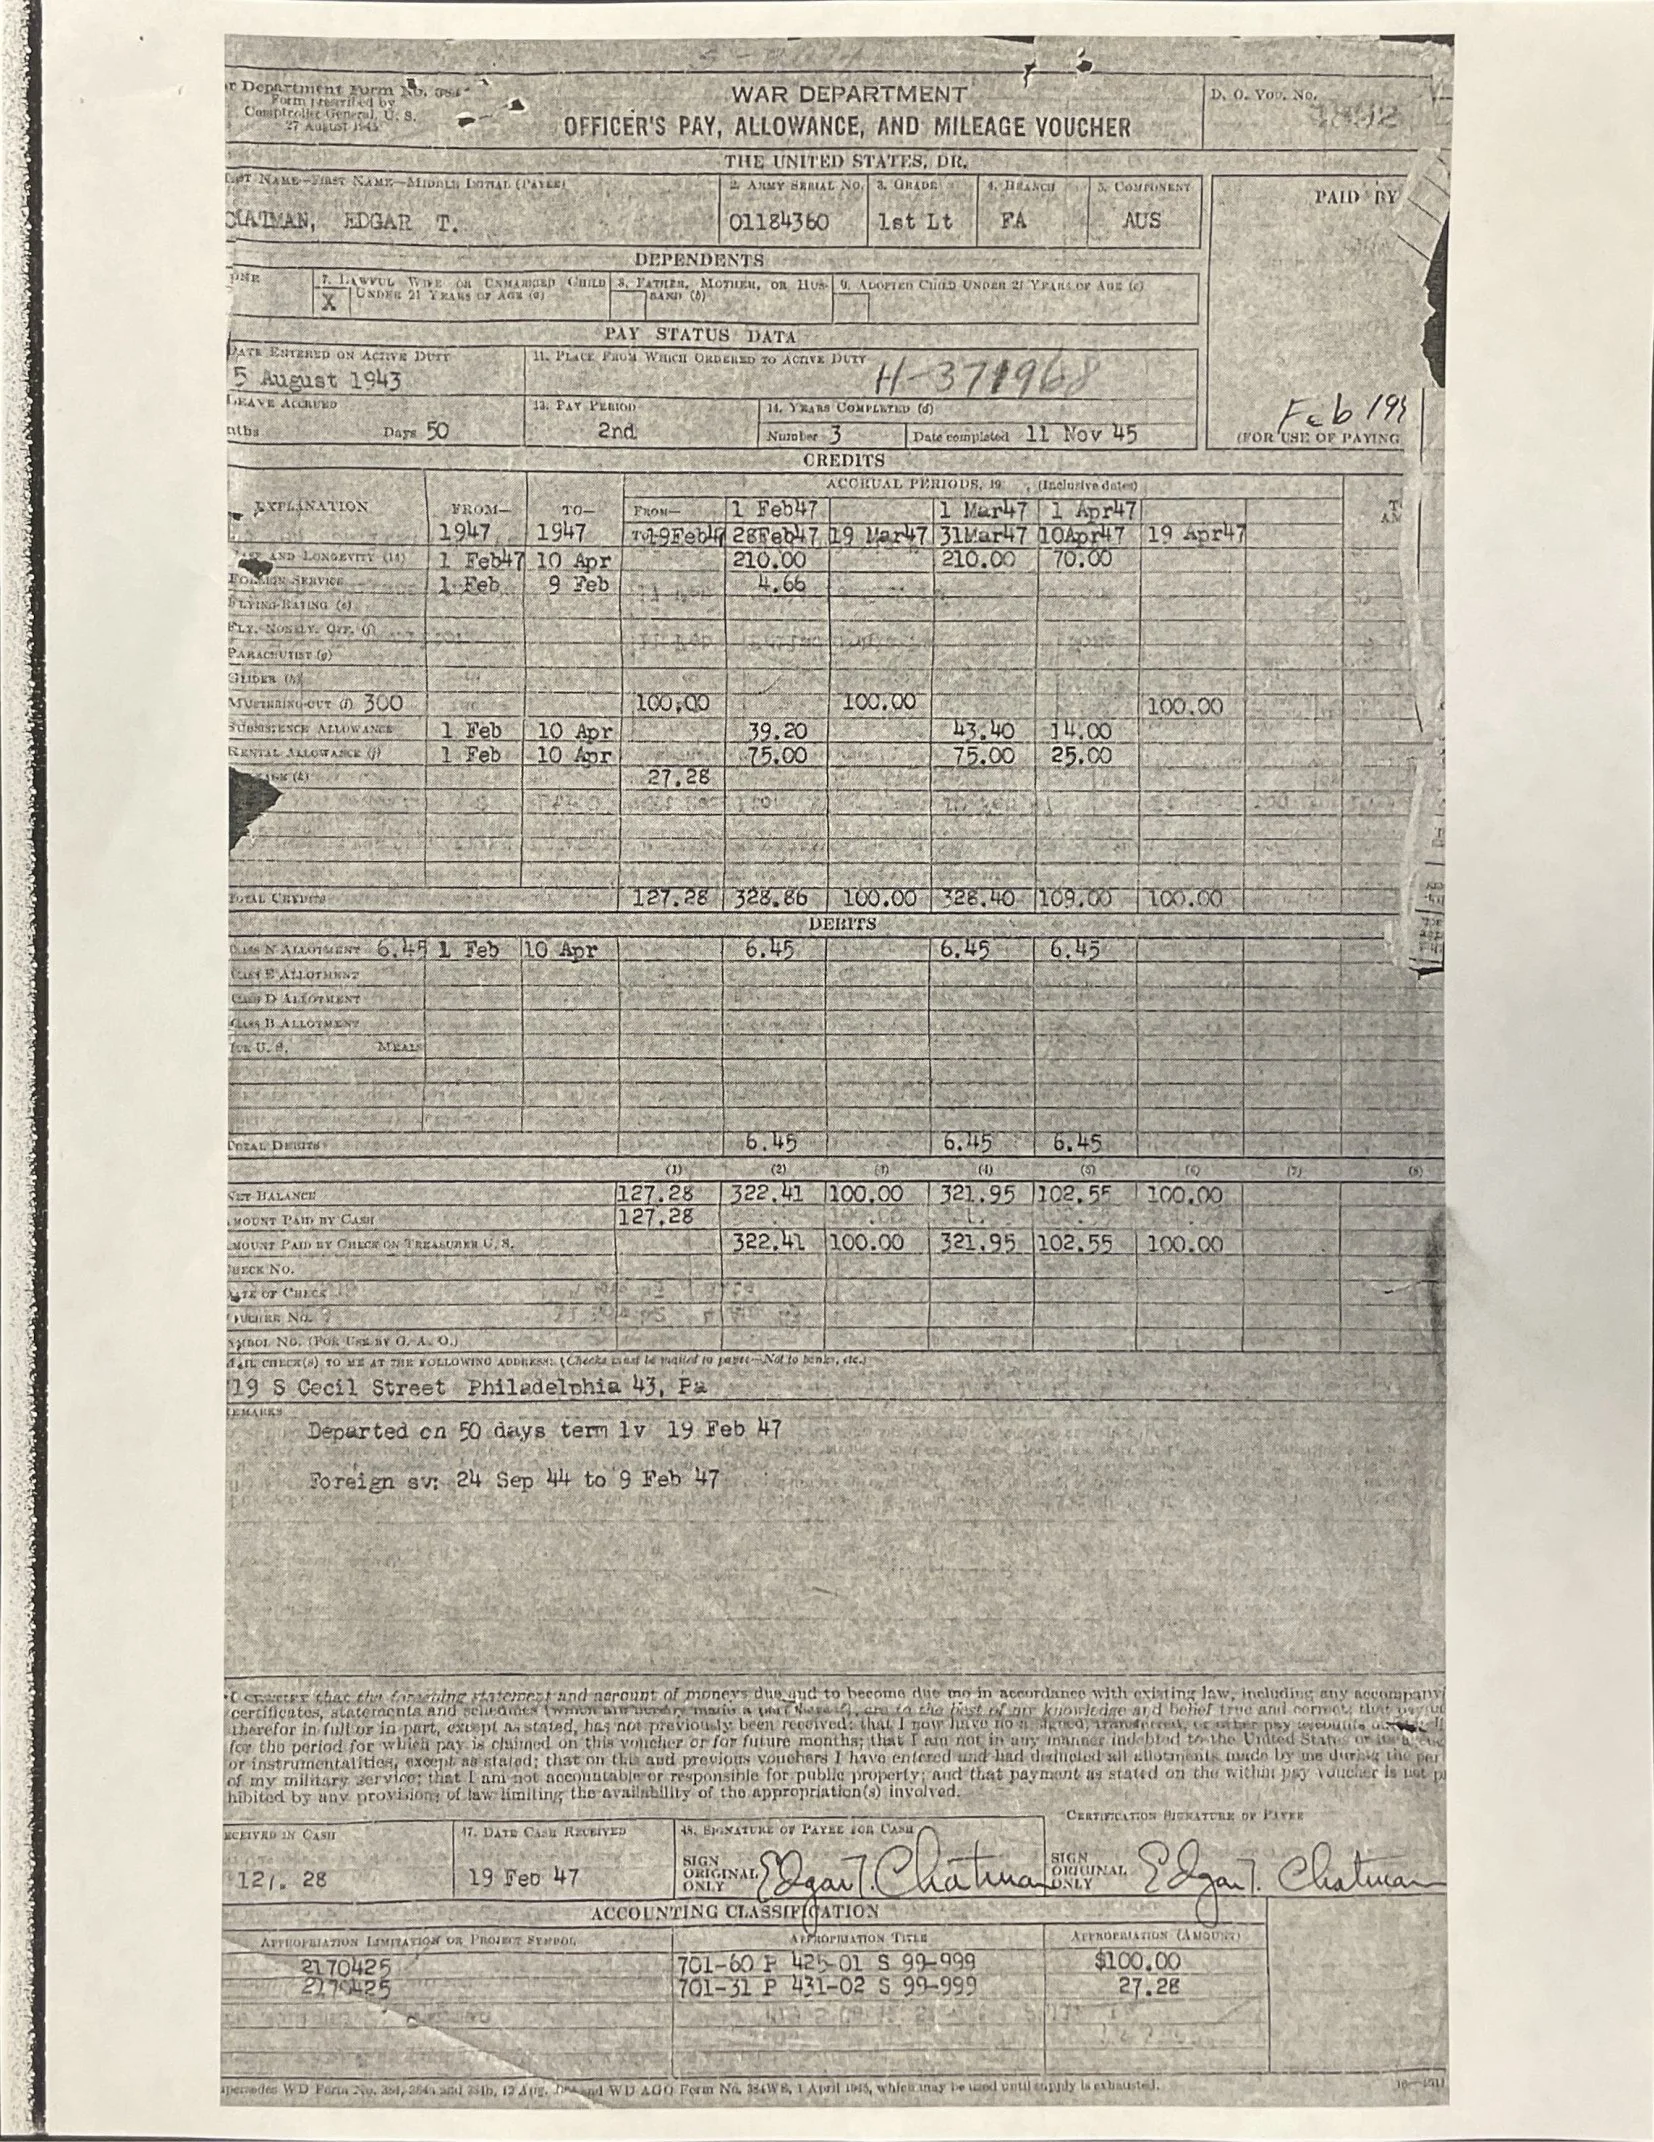 r Department Form No. 384
Form prescribed by
Comptroller General, U. S.
27 August 1945
WAR DEPARTMENT
OFFICER'S PAY, ALLOWANCE, AND MILEAGE VOUCHER
D. O. Vou. No.
THE UNITED STATES, DR.
LAST NAME—FIRST NAME—MIDDLE INITIAL (PAYEE)
2. ARMY SERIAL NO.
3. GRADE
4. BRANCH
5. COMPONENT
PAID BY
CHATMAN, EDGAR T.
01184360
1st Lt
FA
AUS
DEPENDENTS
ONE
7. LAWFUL WIFE OR UNMARRIED CHILD UNDER 21 YEARS OF AGE (a)
X
8. FATHER, MOTHER, OR HUSBAND (b)
9. ADOPTED CHILD UNDER 21 YEARS OF AGE (c)
PAY STATUS DATA
DATE ENTERED ON ACTIVE DUTY
11. PLACE FROM WHICH ORDERED TO ACTIVE DUTY
5 August 1943
H-371968
LEAVE ACCRUED
13. PAY PERIOD
14. YEARS COMPLETED (d)
Feb 194
nths Days 50
2nd
Number 3
Date completed 11 Nov 45
(FOR USE OF PAYING
CREDITS
ACCRUAL PERIODS, 19 , (Inclusive dates)
EXPLANATION FROM— TO— FROM— 1 Feb47 1 Mar47 1 Apr47
1947 1947 TO 19Feb47 28Feb47 19 Mar47 31Mar47 10Apr47 19 Apr47
BASE AND LONGEVITY (14) 1 Feb47 10 Apr 210.00 210.00 70.00
FOREIGN SERVICE 1 Feb 9 Feb 4.66
FLYING-RATING (e)
FLY. NONFLY. OFF. (f)
PARACHUTIST (g)
GLIDER (h)
MUSTERING-OUT (i) 300 100.00 100.00 100.00
SUBSISTENCE ALLOWANCE 1 Feb 10 Apr 39.20 43.40 14.00
RENTAL ALLOWANCE (j) 1 Feb 10 Apr 75.00 75.00 25.00
AGE (k) 27.28
TOTAL CREDITS 127.28 328.86 100.00 328.40 109.00 100.00
DEBITS
CLASS N ALLOTMENT 6.45 1 Feb 10 Apr 6.45 6.45 6.45
CLASS E ALLOTMENT
CLASS D ALLOTMENT
CLASS B ALLOTMENT
DUE U. S. MEALS
TOTAL DEBITS 6.45 6.45 6.45
(1) (2) (3) (4) (5) (6) (7) (8)
NET BALANCE 127.28 322.41 100.00 321.95 102.55 100.00
AMOUNT PAID BY CASH 127.28
AMOUNT PAID BY CHECK ON TREASURER U. S. 322.41 100.00 321.95 102.55 100.00
CHECK NO.
DATE OF CHECK
VOUCHER NO.
SYMBOL NO. (FOR USE BY G. A. O.)
MAIL CHECK(S) TO ME AT THE FOLLOWING ADDRESS: (Checks must be mailed to payee—Not to banks, etc.)
19 S Cecil Street Philadelphia 43, Pa
REMARKS
Departed on 50 days term lv 19 Feb 47
Foreign sv: 24 Sep 44 to 9 Feb 47
I CERTIFY that the foregoing statement and account of moneys due and to become due me in accordance with existing law, including any accompany
certificates, statements and schedules (which are hereby made a part thereof), are to the best of my knowledge and belief true and correct; that
therefor in full or in part, except as stated, has not previously been received; that I now have no assigned, transferred, or other pay accounts
for the period for which pay is claimed on this voucher or for future months; that I am not in any manner indebted to the United States or its
or instrumentalities, except as stated; that on this and previous vouchers I have entered and had deducted all allotments made by me during the per
of my military service; that I am not accountable or responsible for public property; and that payment as stated on the within pay voucher is not p
hibited by any provisions of law limiting the availability of the appropriation(s) involved.
CERTIFICATION SIGNATURE OF PAYEE
RECEIVED IN CASH
17. DATE CASH RECEIVED
18. SIGNATURE OF PAYEE FOR CASH
127.28
19 Feb 47
SIGN ORIGINAL ONLY
Edgar T. Chatman
SIGN ORIGINAL ONLY
Edgar T. Chatman
ACCOUNTING CLASSIFICATION
APPROPRIATION LIMITATION OR PROJECT SYMBOL
APPROPRIATION TITLE
APPROPRIATION (AMOUNT)
2170425 701-60 P 425-01 S 99-999 $100.00
2170425 701-31 P 431-02 S 99-999 27.28
upersedes WD Form No. 384, 384a and 384b, 12 Aug. and WD AGO Form No. 384WB, 1 April 1945, which may be used until supply is exhausted.